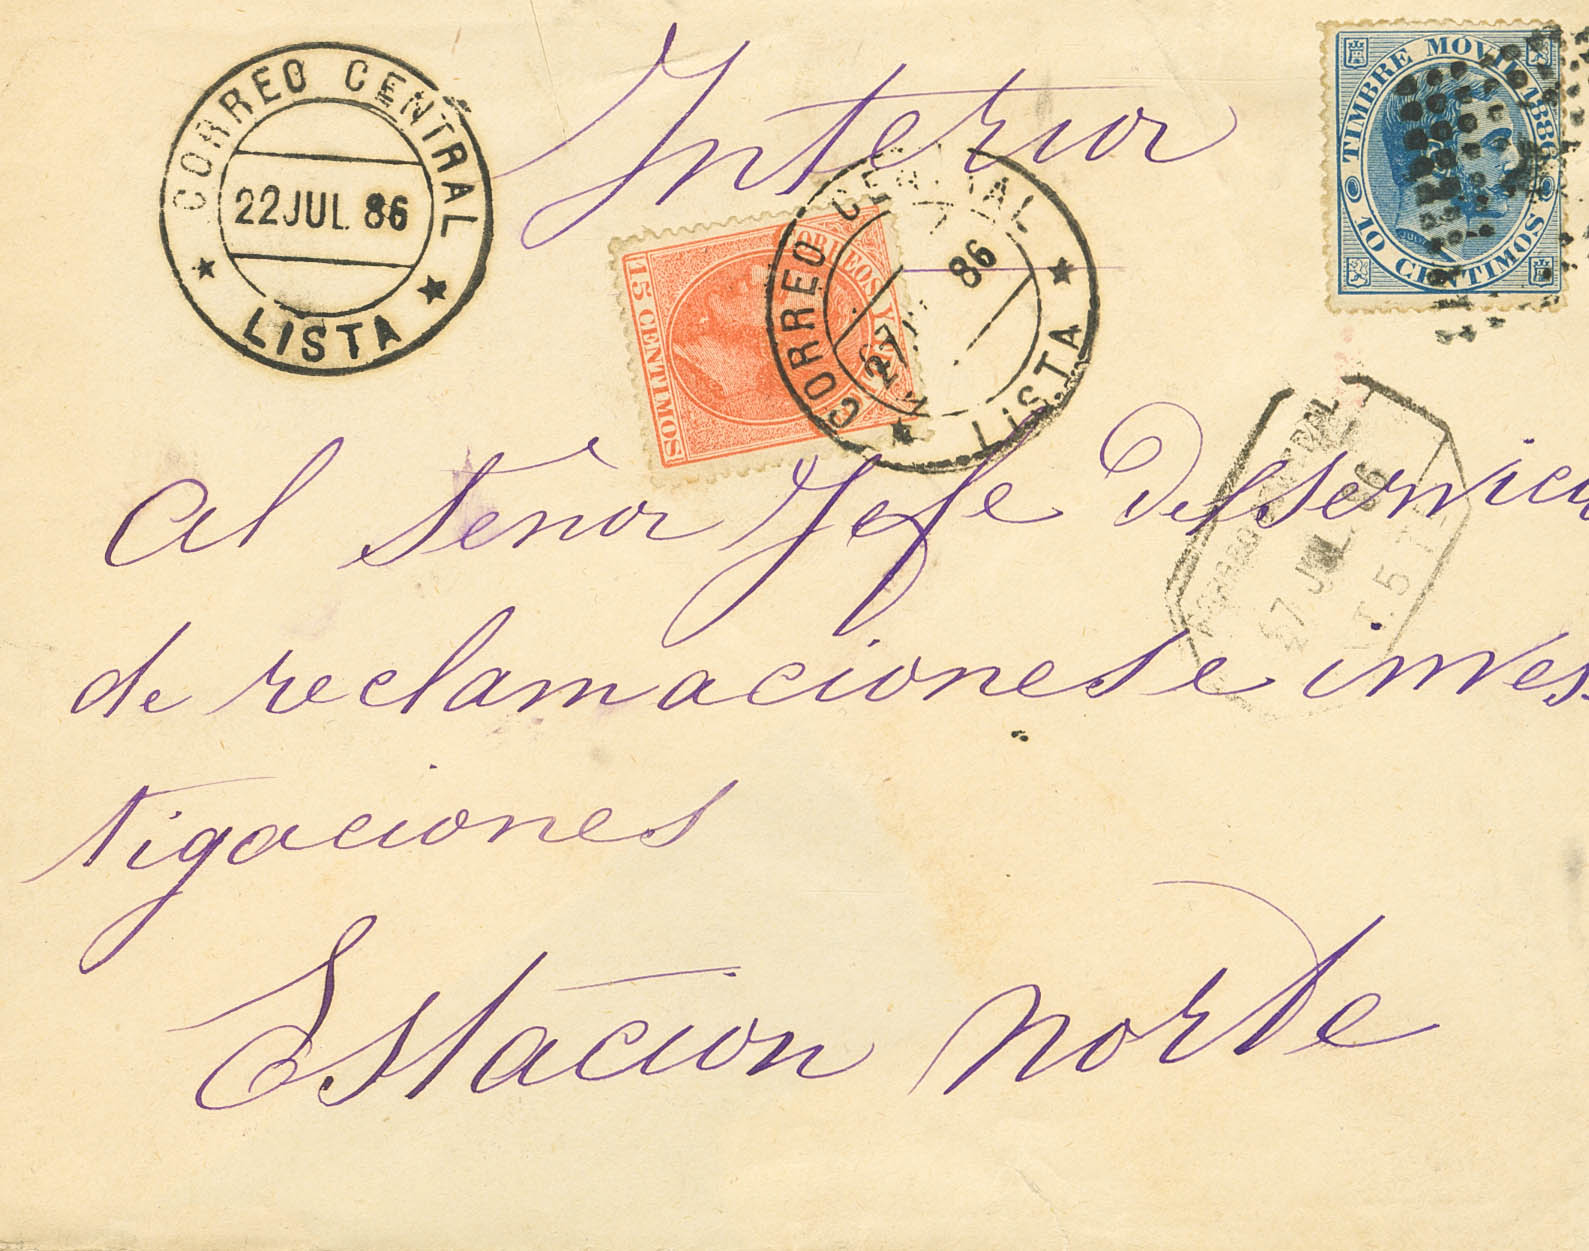 CORREO CENTRAL
22 JUL. 86
LISTA
Interior
TIMBRE MOVIL 1886
10 CENTIMOS
CORREOS Y
15 CENTIMOS
CORREO CENTRAL
27 86
LISTA
CORREO CENTRAL
27 JUL. 86
T. 5 T
Al Señor Jefe del servici
de reclamaciones e inves
tigaciones
Estacion norte